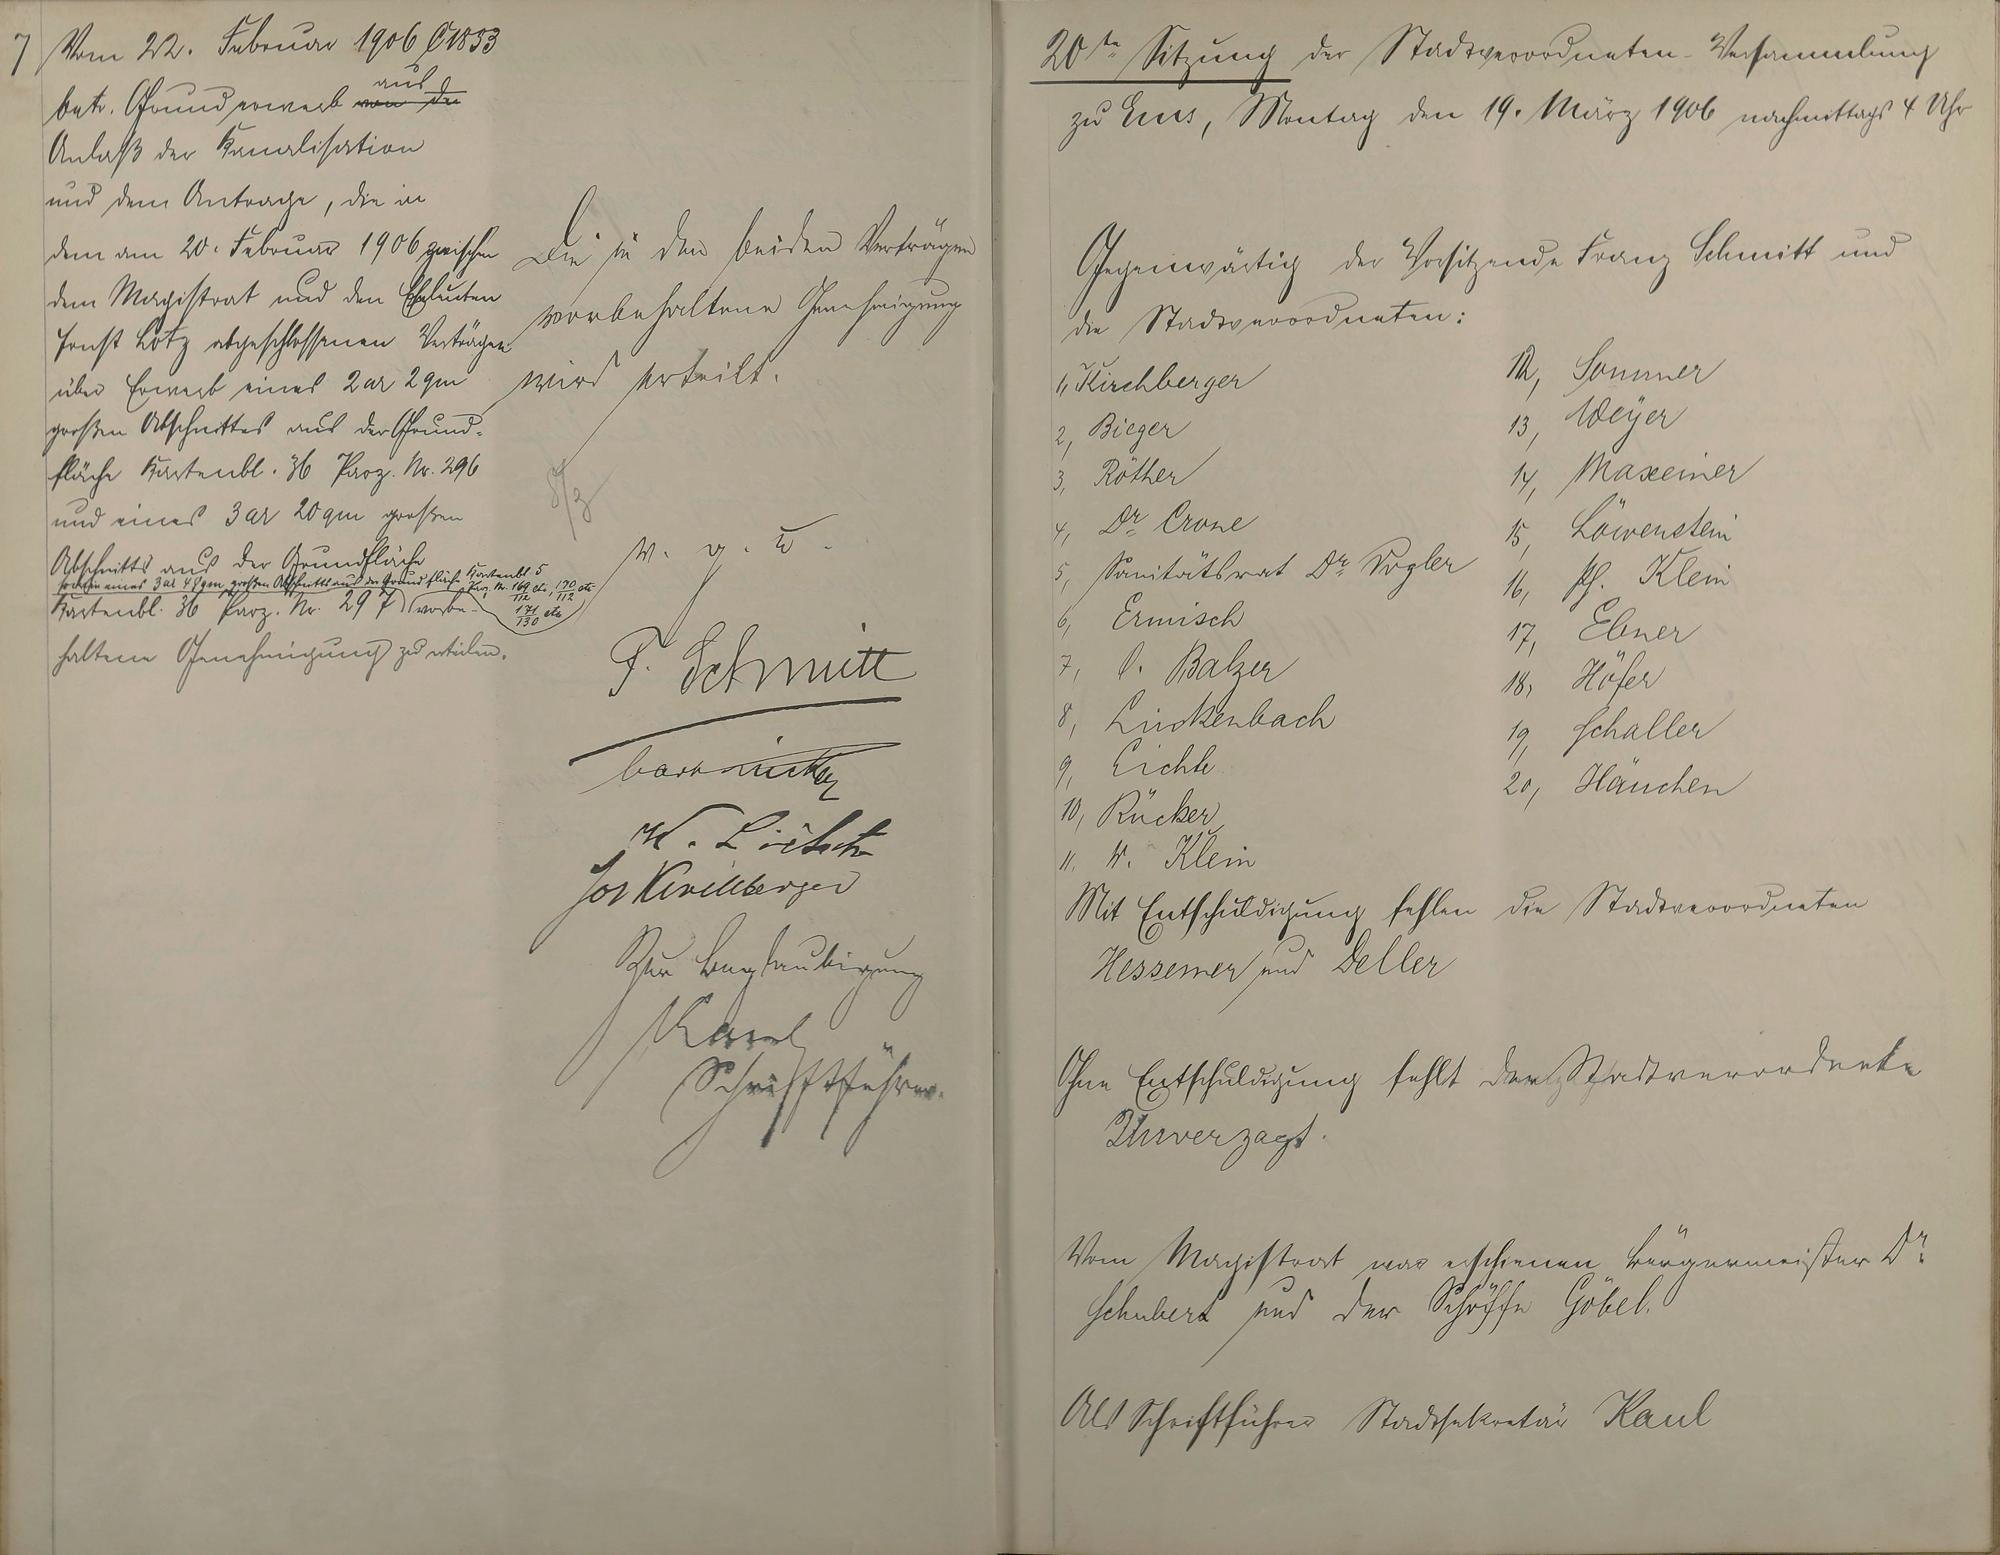 7 Vom 22. Februar 1906 C1853
betr. Grunderwerb von der aus
Anlaß der Kanalisation
und dem Antrage, die in
dem am 20. Februar 1906 zwischen
dem Magistrat und den Eheleuten
Ernst Lotz abgeschlossenen Verträgen
über Erwerb eines 2 ar 2 qm
großen Abschnittes aus der Grund-
fläche Kartenbl. 36 Parz. Nr. 296
und eines 3 ar 20 qm großen
Abschnitts aus der Grundfläche
sowie eines 3 ar 48 qm großen Abschnitts aus der Grundfläche Kartenbl 5
Parz. Nr. 169/112 etc, 170/112 etc
171/130 etc
Kartenbl. 36 Parz. Nr. 297 vorbe-
haltene Genehmigung zu erteilen.
Die in den beiden Verträgen
vorbehaltene Genehmigung
wird erteilt.
v. g. u.
F. Schmitt
Jos Kirchberger
Zur Beglaubigung
Kaul
Schriftführer.
20te Sitzung der Stadtverordneten-Versammlung
zu Ems, Montag den 19. März 1906 nachmittags 4 Uhr
Gegenwärtig der Vorsitzende Franz Schmitt und
die Stadtverordneten:
1, Kirchberger
2, Bieger
3, Röther
4, Dr. Crone
5, Sanitätsrat Dr. Vogler
6, Ermisch
7, C. Balzer
8, Linkenbach
9, Eichle
10, Rücker
11. W. Klein
12, Sommer
13, Weyer
14, Maxeiner
15, Löwenstein
16, Ph. Klein
17, Ebner
18, Höfer
19, Schaller
20, Häuchen
Mit Entschuldigung fehlen die Stadtverordneten
Hessemer und Deller
Ohne Entschuldigung fehlt der Stadtverordnete
Unverzagt.
Vom Magistrat war erschienen Bürgermeister Dr.
Schubert und der Schöffe Göbel.
Als Schriftführer Stadtsekretär Kaul